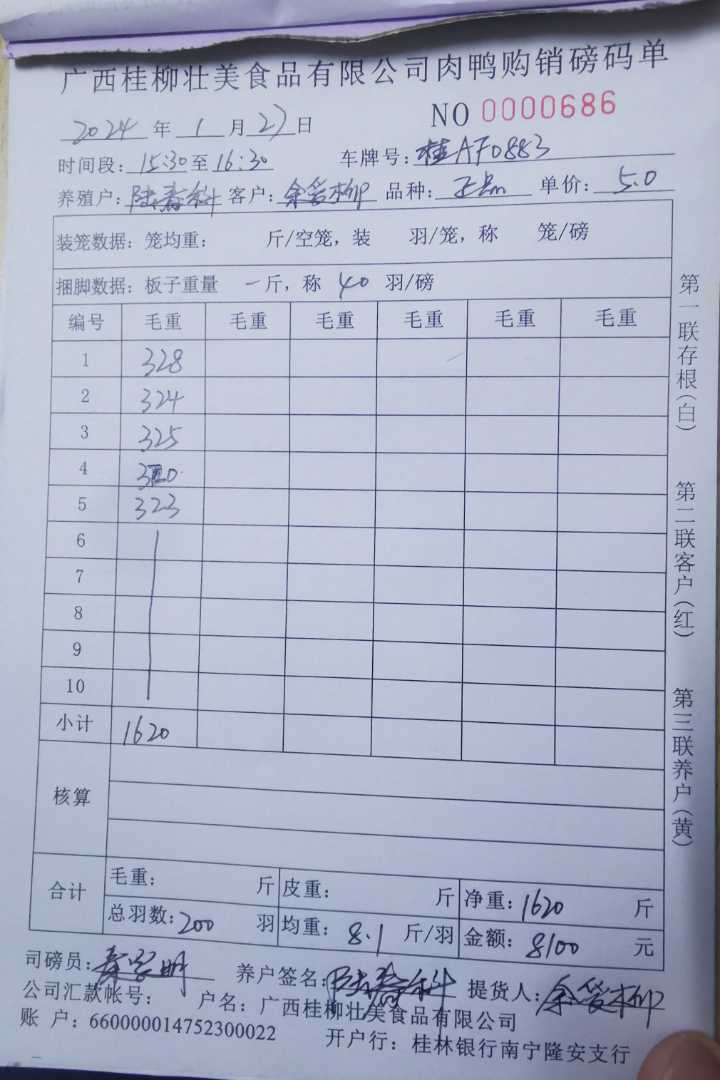 广西桂柳壮美食品有限公司肉鸭购销磅码单
NO 0000686
2024 年 1 月 27 日
时间段: 15:30 至 16:30 车牌号: 桂AF0883
养殖户: 陆春科 客户: 余爱柳 品种: 单价: 5.0
装笼数据: 笼均重: 斤/空笼, 装 羽/笼, 称 笼/磅
捆脚数据: 板子重量 一斤, 称 40 羽/磅
编号 毛重 毛重 毛重 毛重 毛重 毛重
1 328
2 324
3 325
4 320
5 323
6
7
8
9
10
小计 1620
核算
合计 毛重: 斤 皮重: 斤 净重: 1620 斤
总羽数: 200 羽 均重: 8.1 斤/羽 金额: 8100 元
司磅员: 养户签名: 陆春科 提货人: 余爱柳
公司汇款帐号: 户名: 广西桂柳壮美食品有限公司
账 户: 660000014752300022 开户行: 桂林银行南宁隆安支行
第一联存根(白)
第二联客户(红)
第三联养户(黄)